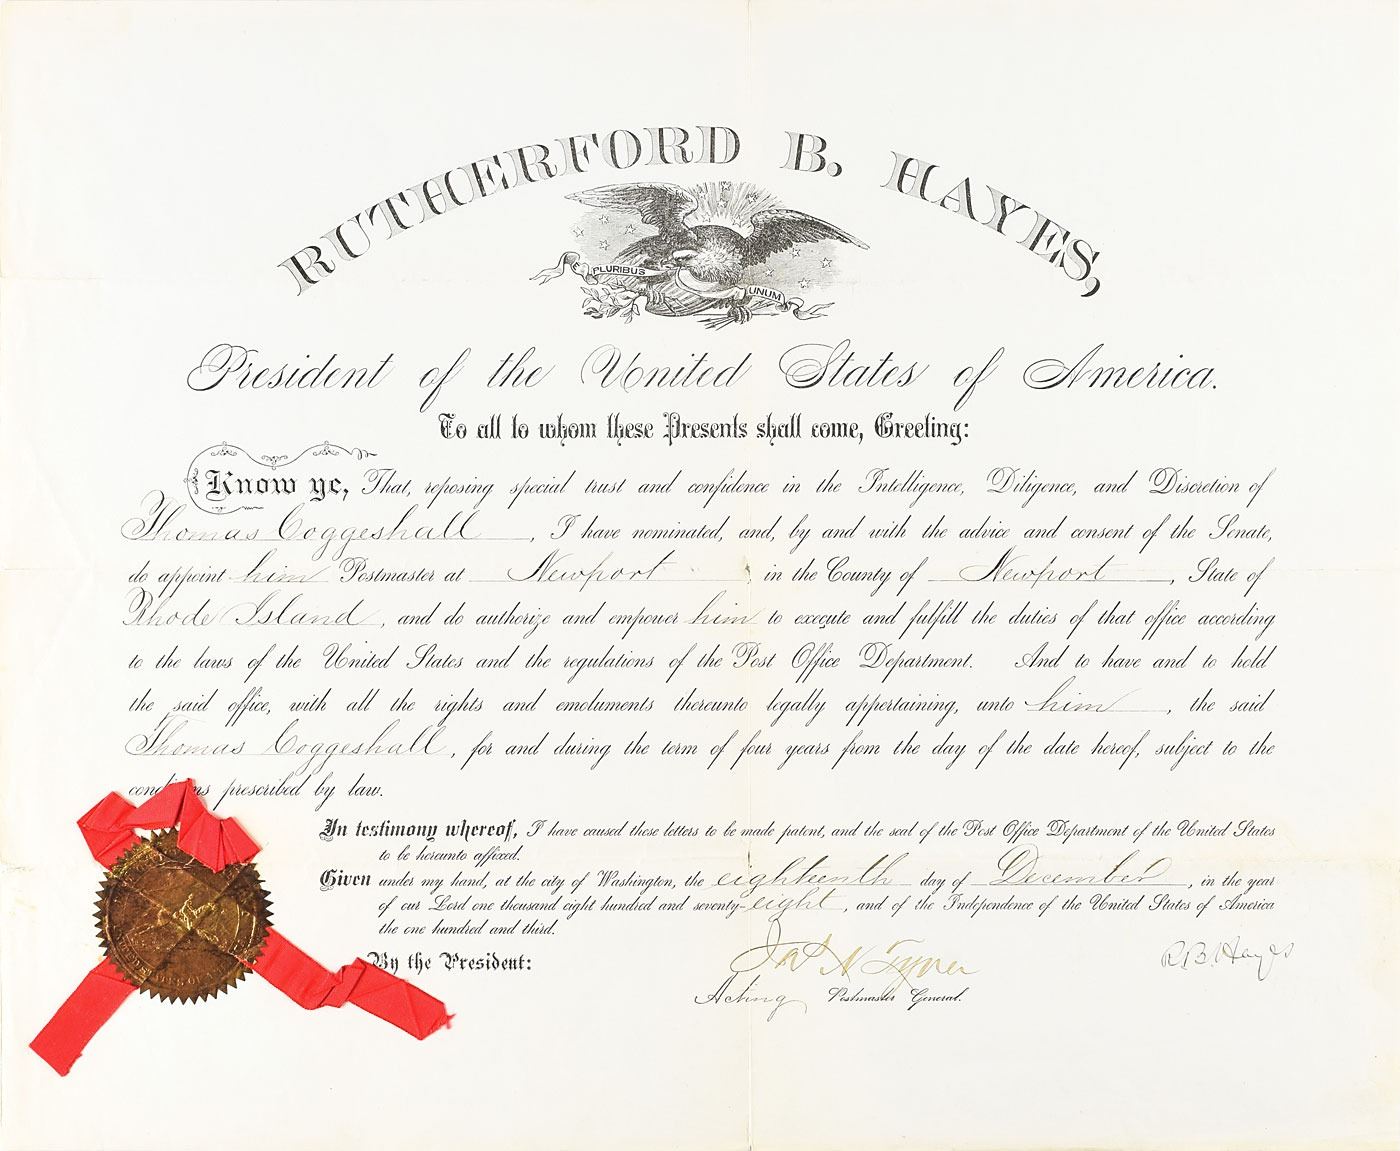 RUTHERFORD B. HAYES,
E PLURIBUS UNUM
President of the United States of America.
To all to whom these Presents shall come, Greeting:
Know ye, That, reposing special trust and confidence in the Intelligence, Diligence, and Discretion of
Thomas Coggeshall, I have nominated, and, by and with the advice and consent of the Senate,
do appoint him Postmaster at Newport in the County of Newport, State of
Rhode Island, and do authorize and empower him to execute and fulfill the duties of that office according
to the laws of the United States and the regulations of the Post Office Department. And to have and to hold
the said office, with all the rights and emoluments thereunto legally appertaining, unto him, the said
Thomas Coggeshall, for and during the term of four years from the day of the date hereof, subject to the
conditions prescribed by law.
In testimony whereof, I have caused these letters to be made patent, and the seal of the Post Office Department of the United States
to be hereunto affixed.
Given under my hand, at the city of Washington, the eighteenth day of December, in the year
of our Lord one thousand eight hundred and seventy-eight, and of the Independence of the United States of America
the one hundred and third.
By the President:
Jas N Tyner
R.B. Hayes
Acting Postmaster General.